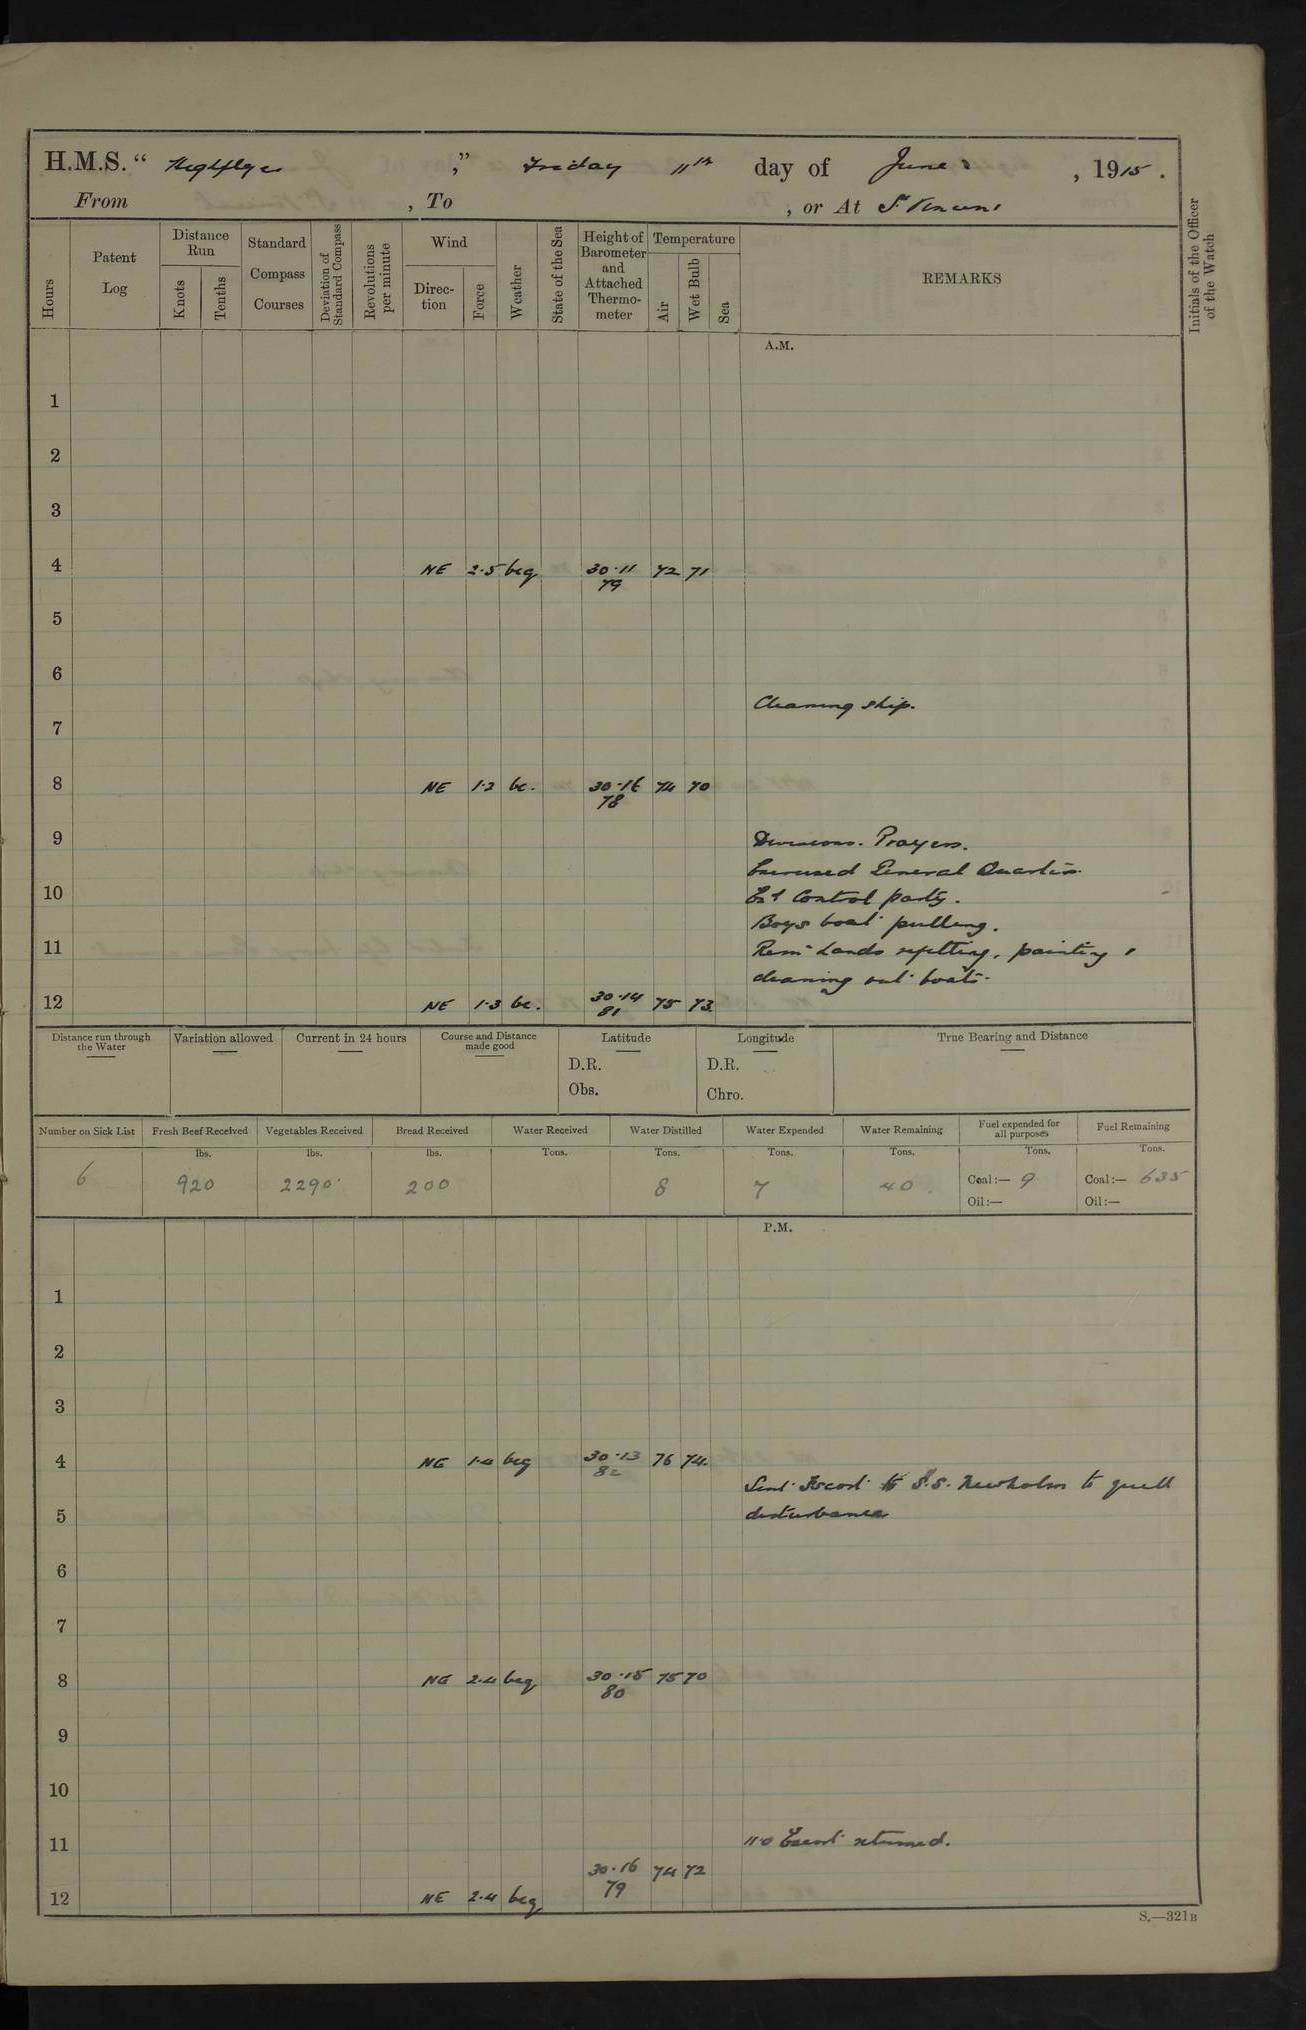 H.M.S. “ Highflyer ,” Friday 11th day of June , 1915.
From , To , or At St Vincent
Hours
Patent Log
Distance Run
Knots
Tenths
Standard Compass Courses
Deviation of Standard Compass
Revolutions per minute
Wind
Direction
Force
Weather
State of the Sea
Height of Barometer and Attached Thermometer
Temperature
Air
Wet Bulb
Sea
REMARKS
Initials of the Officer of the Watch
A.M.
1
2
3
4 NE 2·5 bcq 30·11 72 71
79
5
6
Cleaning ship.
7
8 NE 1·2 bc. 30·16 74 70
78
9 Divisions. Prayers.
Exercised General Quarters.
10 Ex'd Control party.
Boys boat pulling.
11 Rem' hands refitting, painting &
cleaning out boats.
12 NE 1·3 bc. 30·14 75 73.
81
Distance run through the Water
Variation allowed
Current in 24 hours
Course and Distance made good
Latitude
D.R.
Obs.
Longitude
D.R.
Chro.
True Bearing and Distance
Number on Sick List
Fresh Beef Received
Vegetables Received
Bread Received
Water Received
Water Distilled
Water Expended
Water Remaining
Fuel expended for all purposes
Fuel Remaining
lbs. lbs. lbs. Tons. Tons. Tons. Tons. Tons. Tons.
6 920 2290 200 8 7 40 Coal:— 9 Coal:— 635
Oil:— Oil:—
P.M.
1
2
3
4 NE 1·4 bcq 30·13 76 74.
82
Sent Escort to S.S. Newholm to quell
5 disturbance
6
7
8 NE 2·4 bcq 30·15 75 70
80
9
10
11 11·0 Escort returned.
30·16 74 72
12 NE 2·4 bcq 79
S.—321B